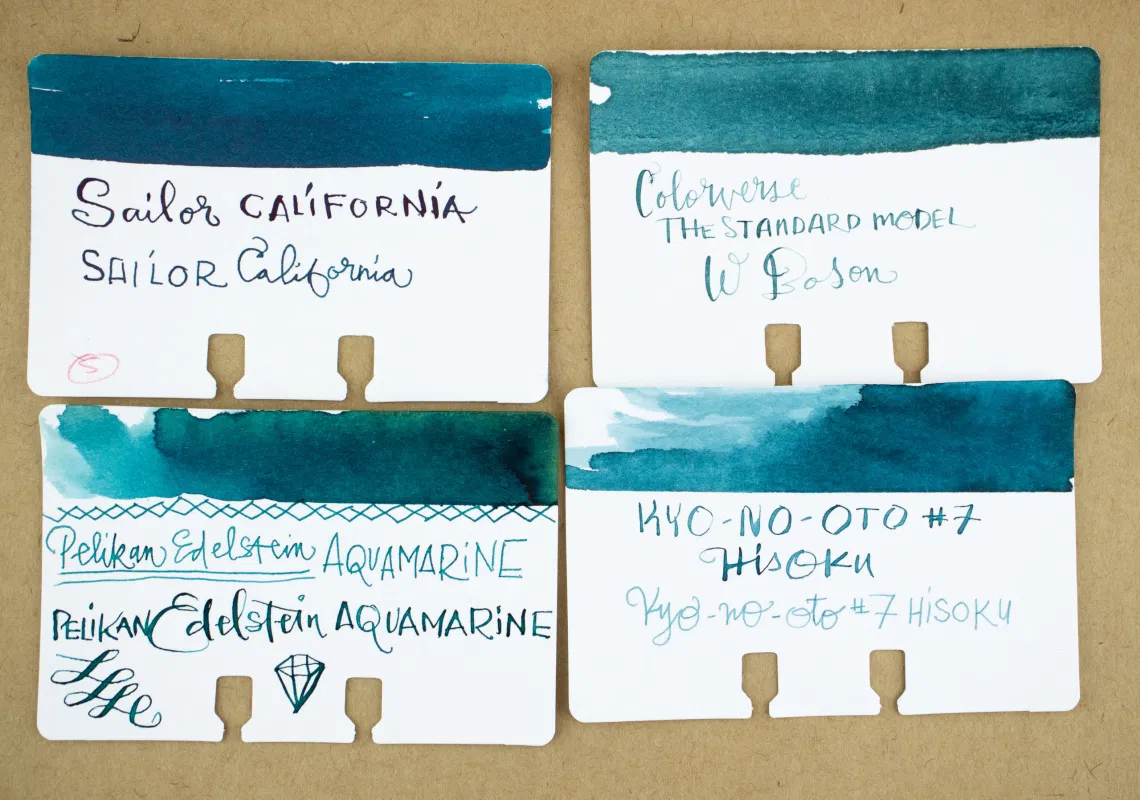 Sailor CALIFORNIA
SAILOR California
S
Colorverse
THE STANDARD MODEL
W Boson
Pelikan Edelstein AQUAMARINE
PELIKAN Edelstein AQUAMARINE
KYO-NO-OTO #7
HISOKU
Kyo-no-oto #7 HISOKU